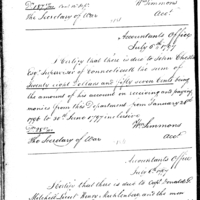 Wm Simmons
The Secretary of War
Acct
Accountants Office
July 6th 1797
I Certify that there is due to John Chester
Esqr Supervisor of Connecticut the sum of
Seventy eight Dollars and fifty seven Cents being
the amount of his account on receiving and paying
monies from this Department from January 28th
1796 to 14th June 1797 inclusive
Wm Simmons
The Secretary of War
Acct
Accountants Office
July 6th 1797
I Certify that there is due to Capt Donald G.
Mitchel Lieut Henry Muhlenberg and the men